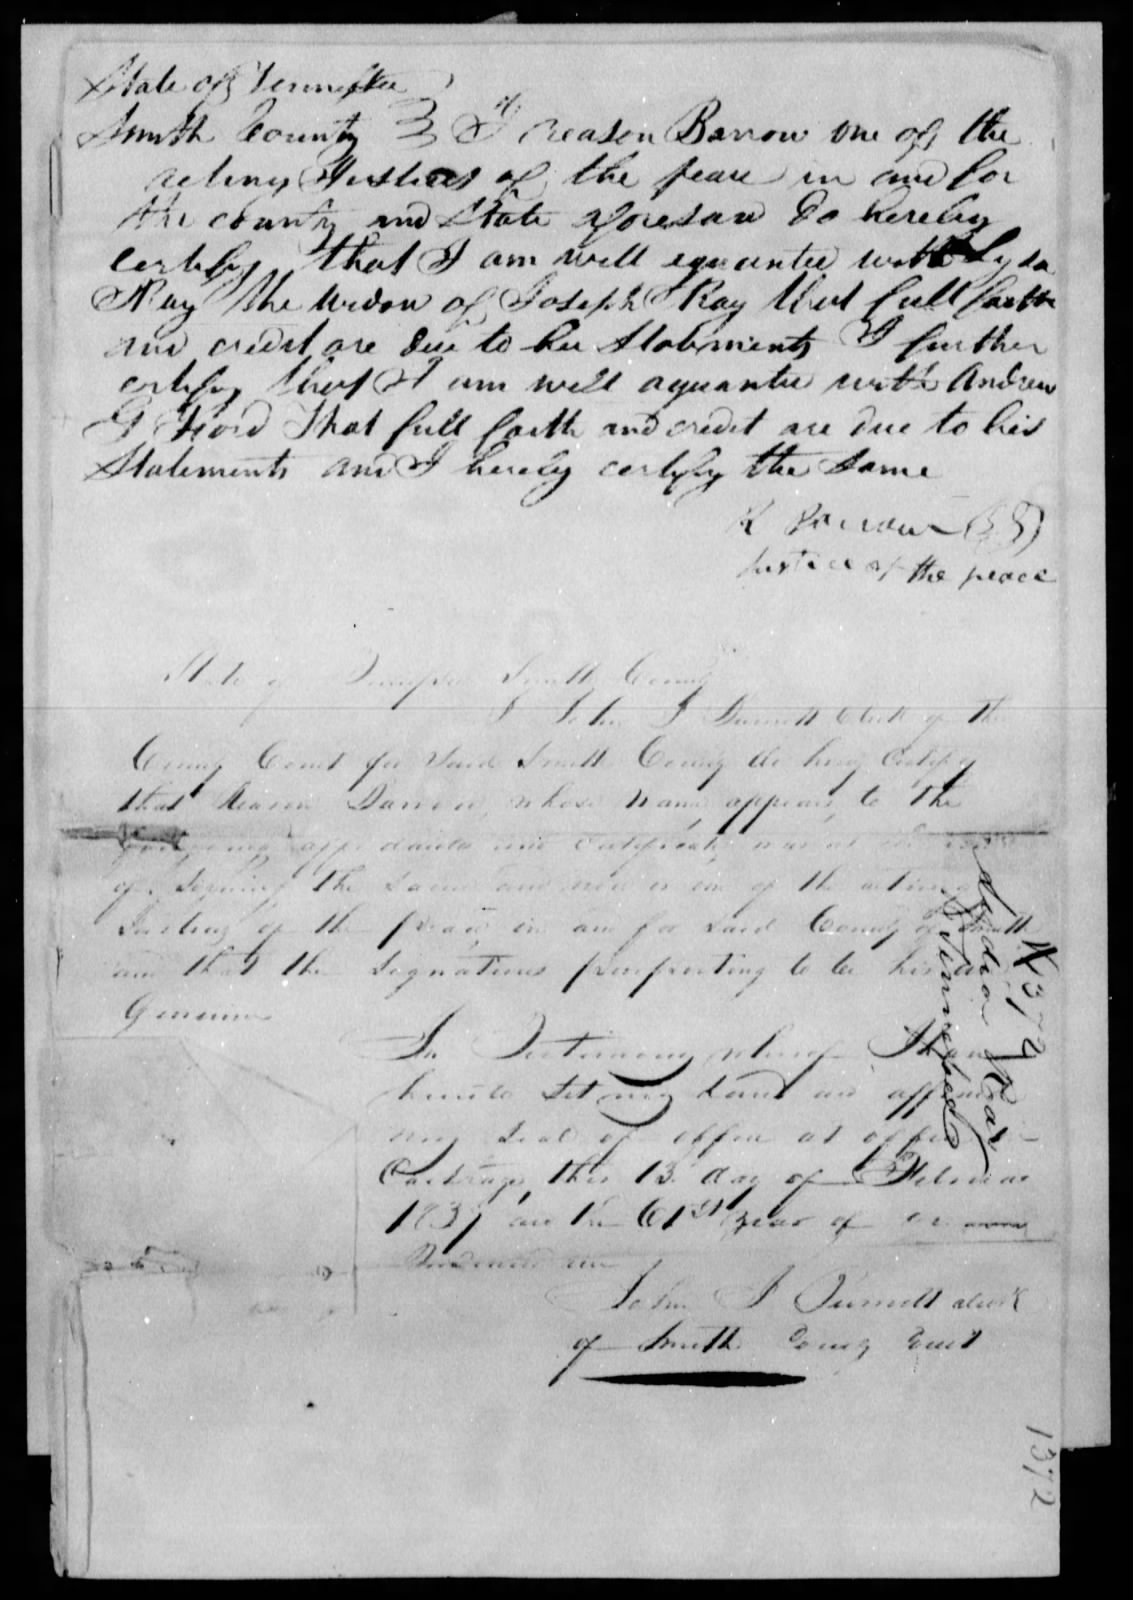 State of Tennessee
Smith County I Reason Barrow one of the
acting Justices of the peace in and for
the county and State aforesaid do hereby
certify that I am well equantee with Lyda
Ray the Widow of Joseph Ray that full faith
and credit are due to her Statements I further
certify that I am well aquantee with Andrew
G Ford That full faith and credit are due to his
Statements and I hereby certify the Same
R Barrow
Justice of the peace
State of Tennessee Smith County
I John J Burnett Clerk of the
County Court for said Smith County do hereby Certify
that Reason Barrow, whose name appears to the
foregoing affidavits and Certificate was at the time
of signing the same and now is one of the acting
Justices of the peace in and for said County of Smith
and that the signatures purporting to be his are
Genuine
In Testimony whereof I have
hereto set my hand and affixed
my seal of office at office in
Carthage, this 13 day of February
1837 and the 61st year of
Independence
John J Burnett clerk
of Smith County Court
1372
Lydia Ray
Tennessee
1372